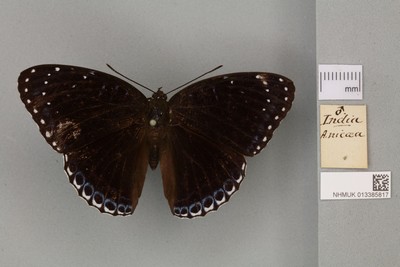 mm
♂
India
A.nicæa
NHMUK 013385817